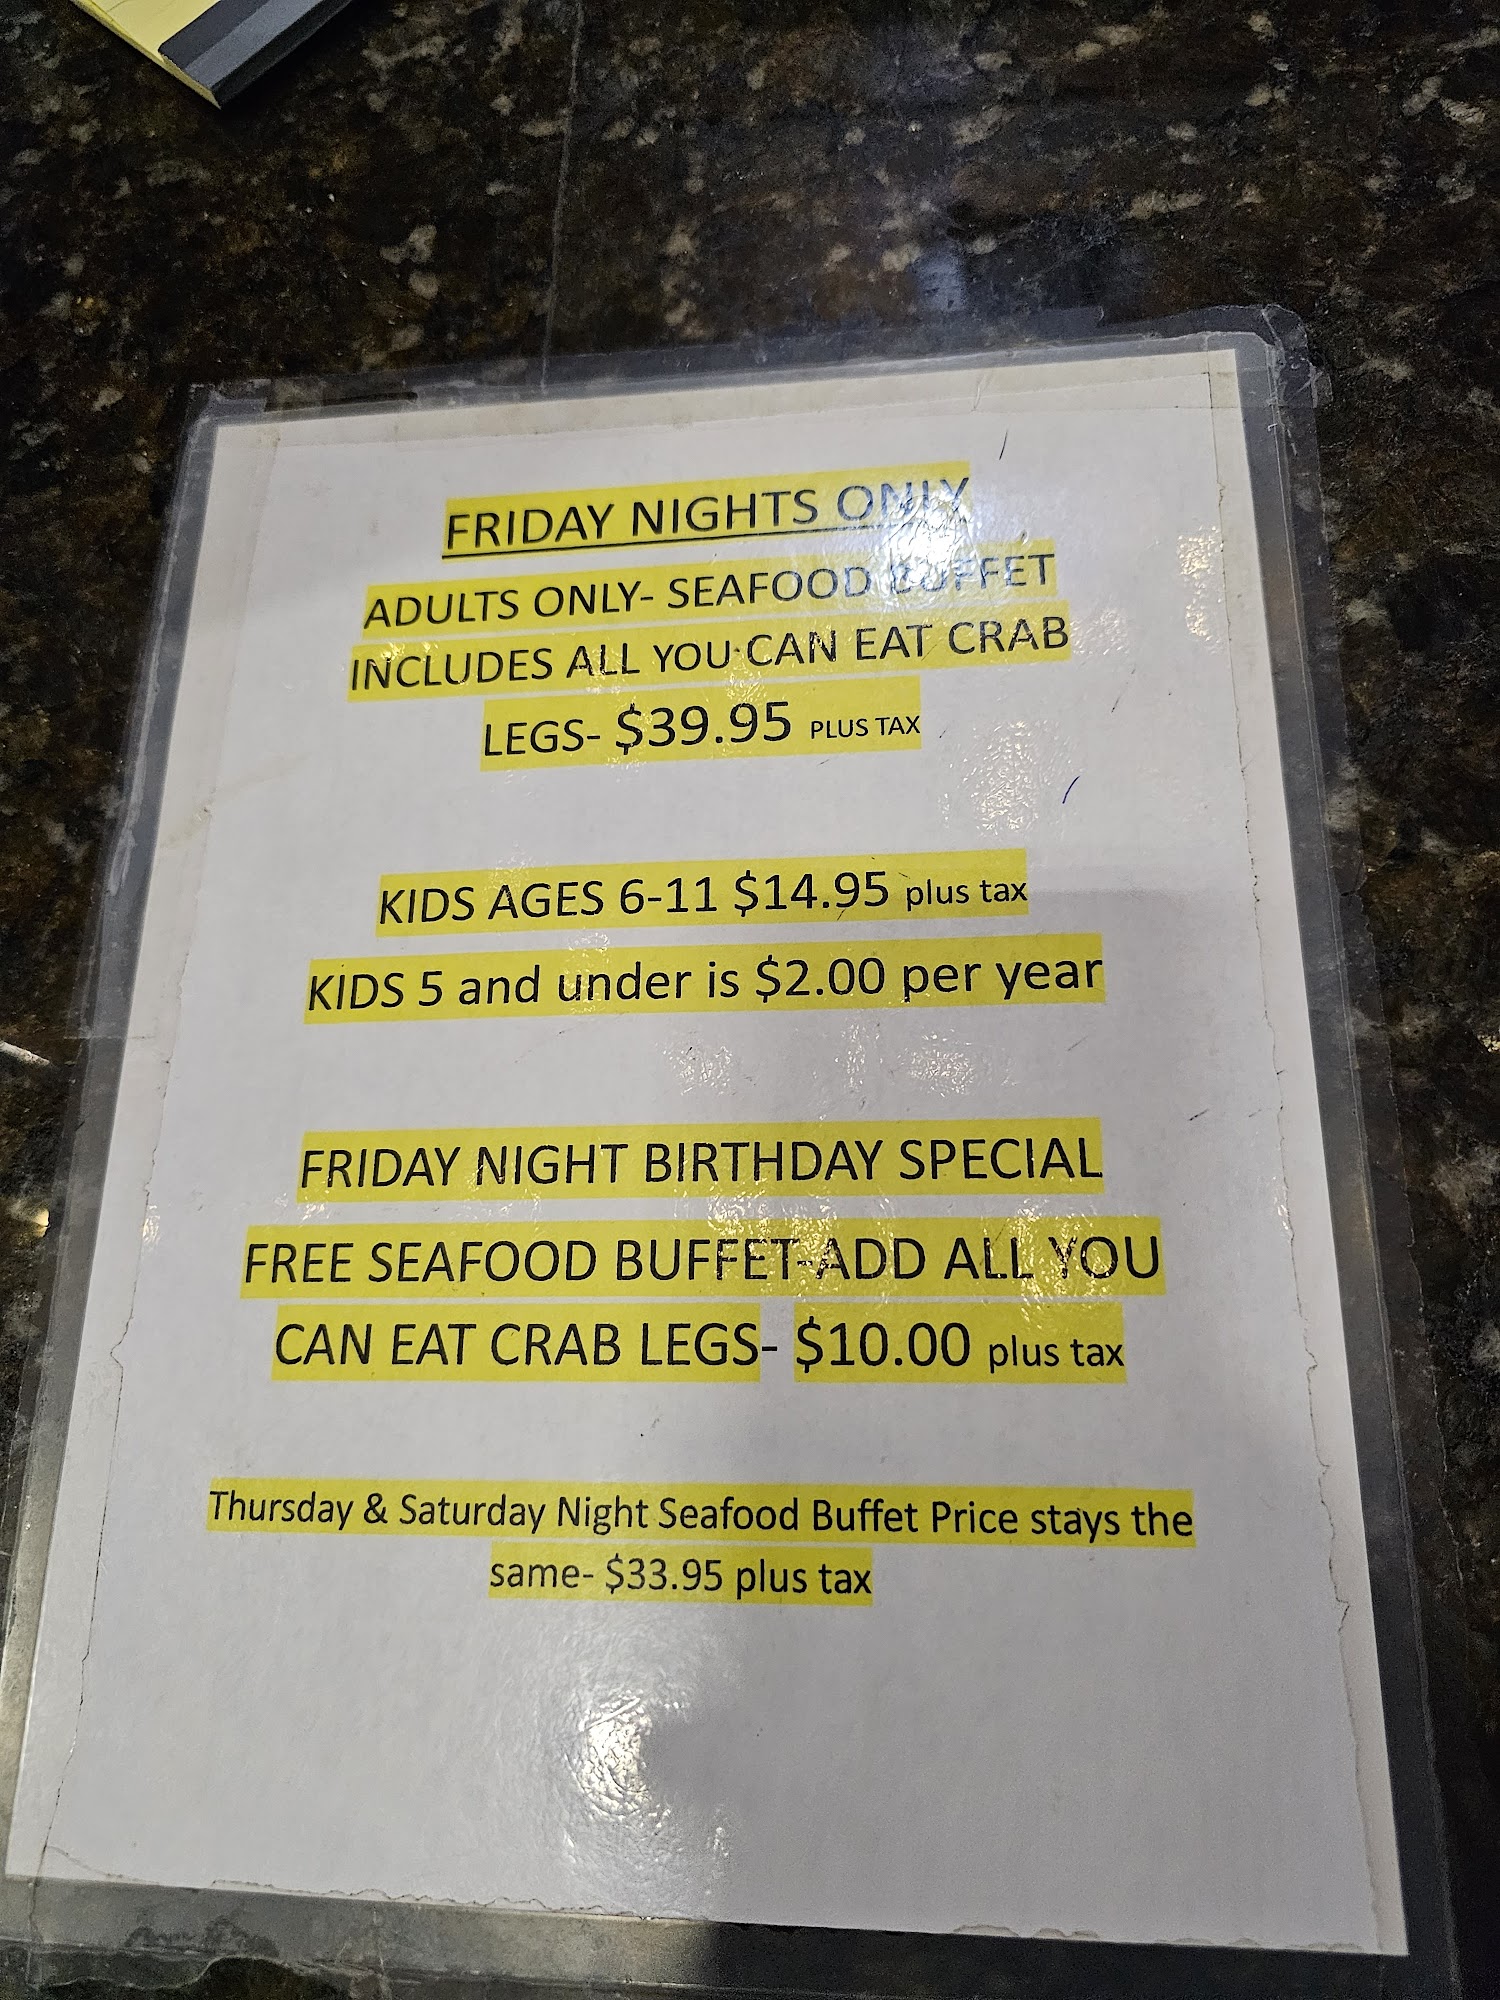 FRIDAY NIGHTS ONLY
ADULTS ONLY- SEAFOOD BUFFET
INCLUDES ALL YOU CAN EAT CRAB
LEGS- $39.95 PLUS TAX
KIDS AGES 6-11 $14.95 plus tax
KIDS 5 and under is $2.00 per year
FRIDAY NIGHT BIRTHDAY SPECIAL
FREE SEAFOOD BUFFET-ADD ALL YOU
CAN EAT CRAB LEGS- $10.00 plus tax
Thursday & Saturday Night Seafood Buffet Price stays the
same- $33.95 plus tax